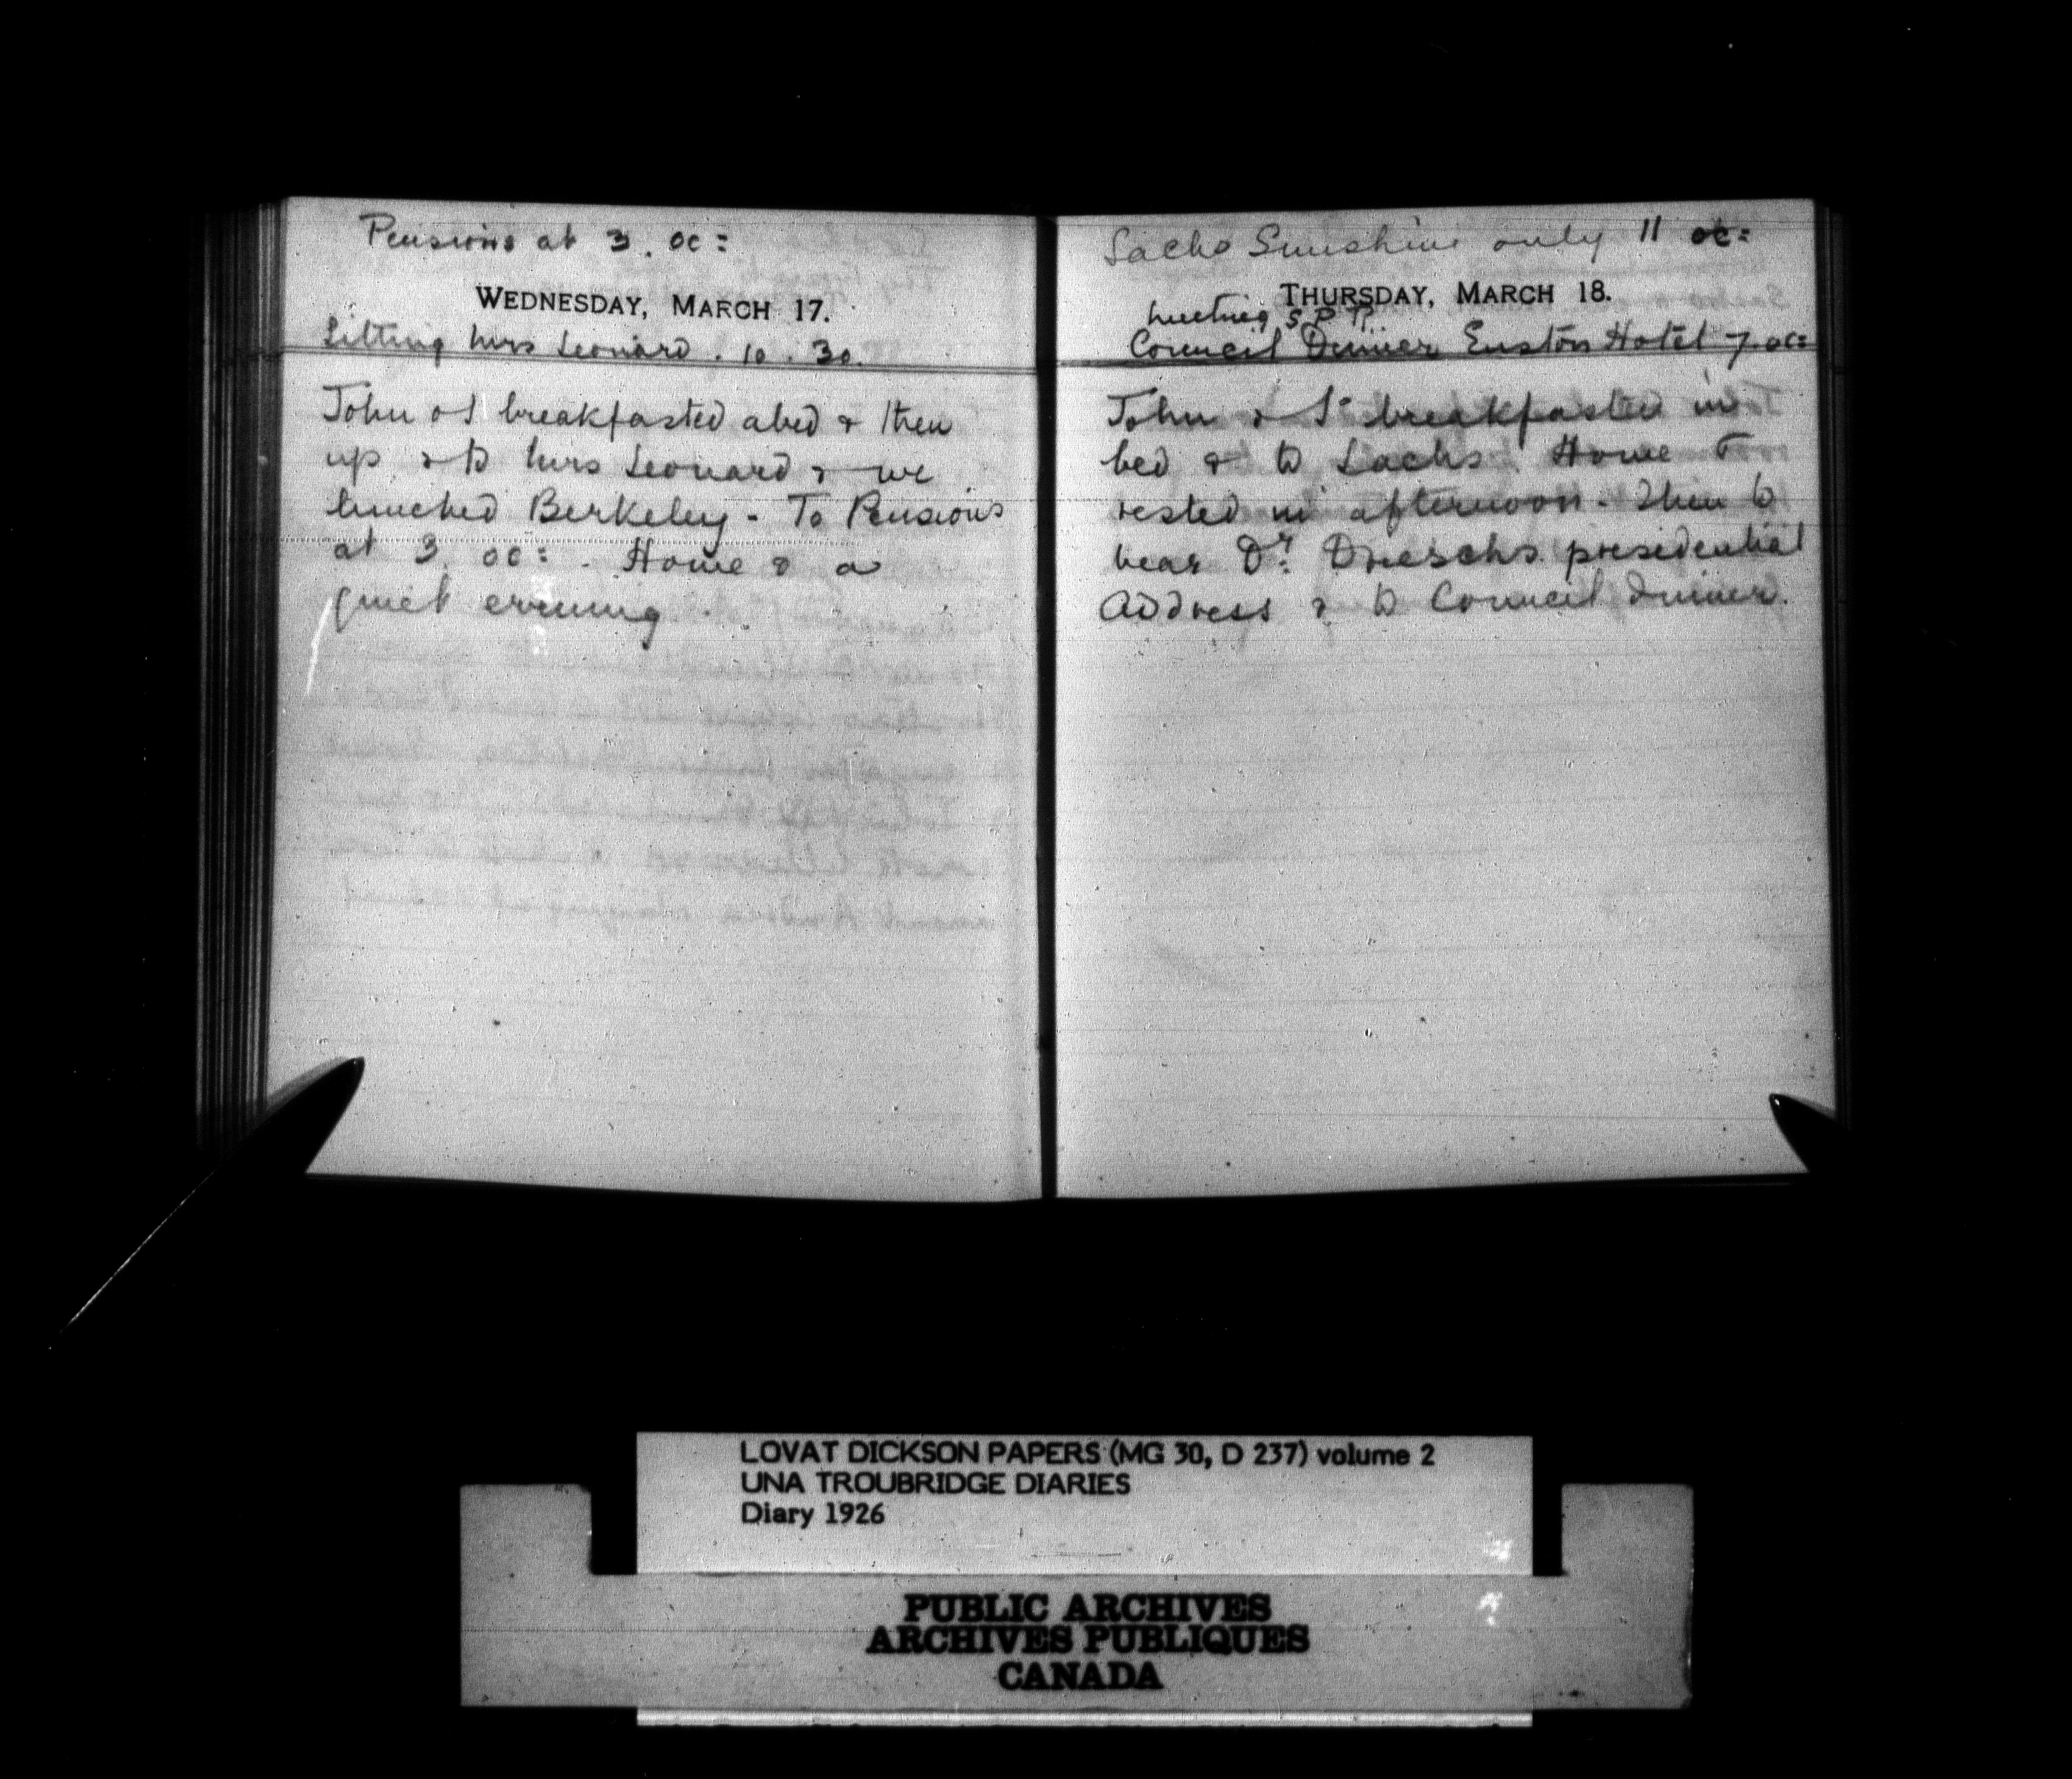 Pensions at 3. oc:
WEDNESDAY, MARCH 17.
Sitting Mrs Leonard. 10.30.
John & I breakfasted abed & then
up & to Mrs Leonard & we
lunched Berkeley - To Pensions
at 3. oc: . Home & a
quiet evening.
Sachs Sunshine only 11 oc:
THURSDAY, MARCH 18.
Meeting S.P.R.
Council Dinner Euston Hotel 7. oc:
John & I breakfasted in
bed & to Sachs. Home &
rested in afternoon. Then to
hear Dr: Drieschs presidential
Address & to Council dinner.
LOVAT DICKSON PAPERS (MG 30, D 237) volume 2
UNA TROUBRIDGE DIARIES
Diary 1926
PUBLIC ARCHIVES
ARCHIVES PUBLIQUES
CANADA